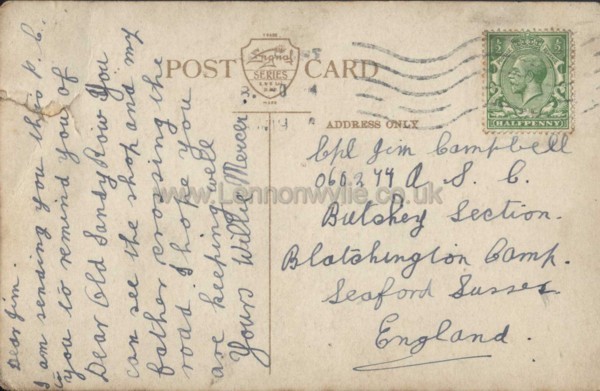 POST CARD
Signal
SERIES
ADDRESS ONLY
HALFPENNY
Dear Jim.
I am sending you this P.C.
to
you to remind you of
Dear Old Sandy Row You
can see the shop and my
father crossing the
road I hope you
are keeping well
Yours Willie Mercer
Cpl Jim Campbell
060244 A S. C.
Butchey Section.
Blatchington Camp.
Seaford Sussex
England.
www.Lennonwylie.co.uk